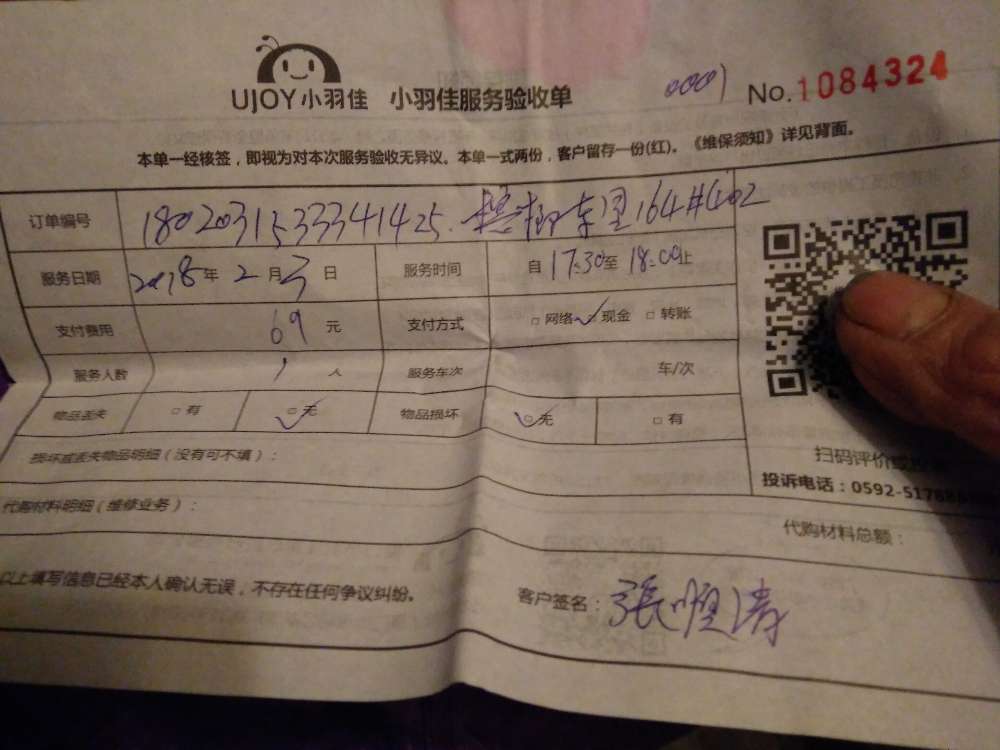 UJOY小羽佳 小羽佳服务验收单 0001 No.1084324
本单一经核签，即视为对本次服务验收无异议。本单一式两份，客户留存一份(红)。《维保须知》详见背面。
订单编号 18020315333341425. 东里164#402
服务日期 2018年2月3日 服务时间 自17:30至18:00止
支付费用 69元 支付方式 □网络 ✓□现金 □转账
服务人数 1人 服务车次 车/次
物品丢失 □有 ☑无 物品损坏 ☑无 □有
损坏或丢失物品明细（没有可不填）：
扫码评价或
投诉电话：0592-5178
代购材料明细（维修业务）：
代购材料总额：
以上填写信息已经本人确认无误，不存在任何争议纠纷。
客户签名：張順涛